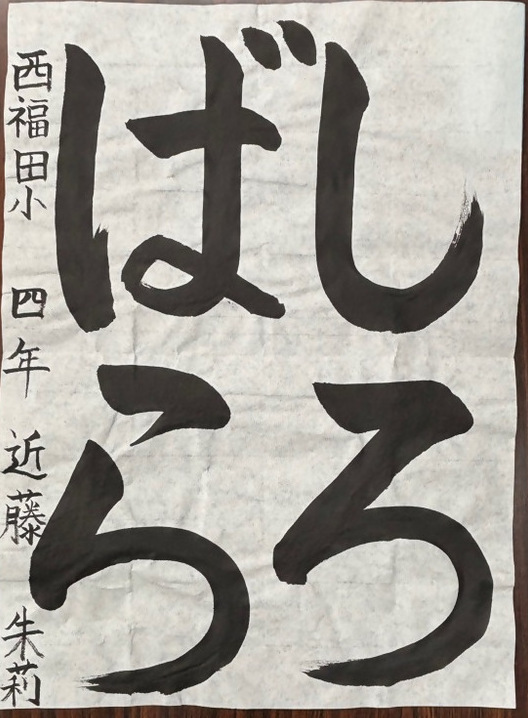 しろ
ばら
西福田小 四年 近藤 朱莉